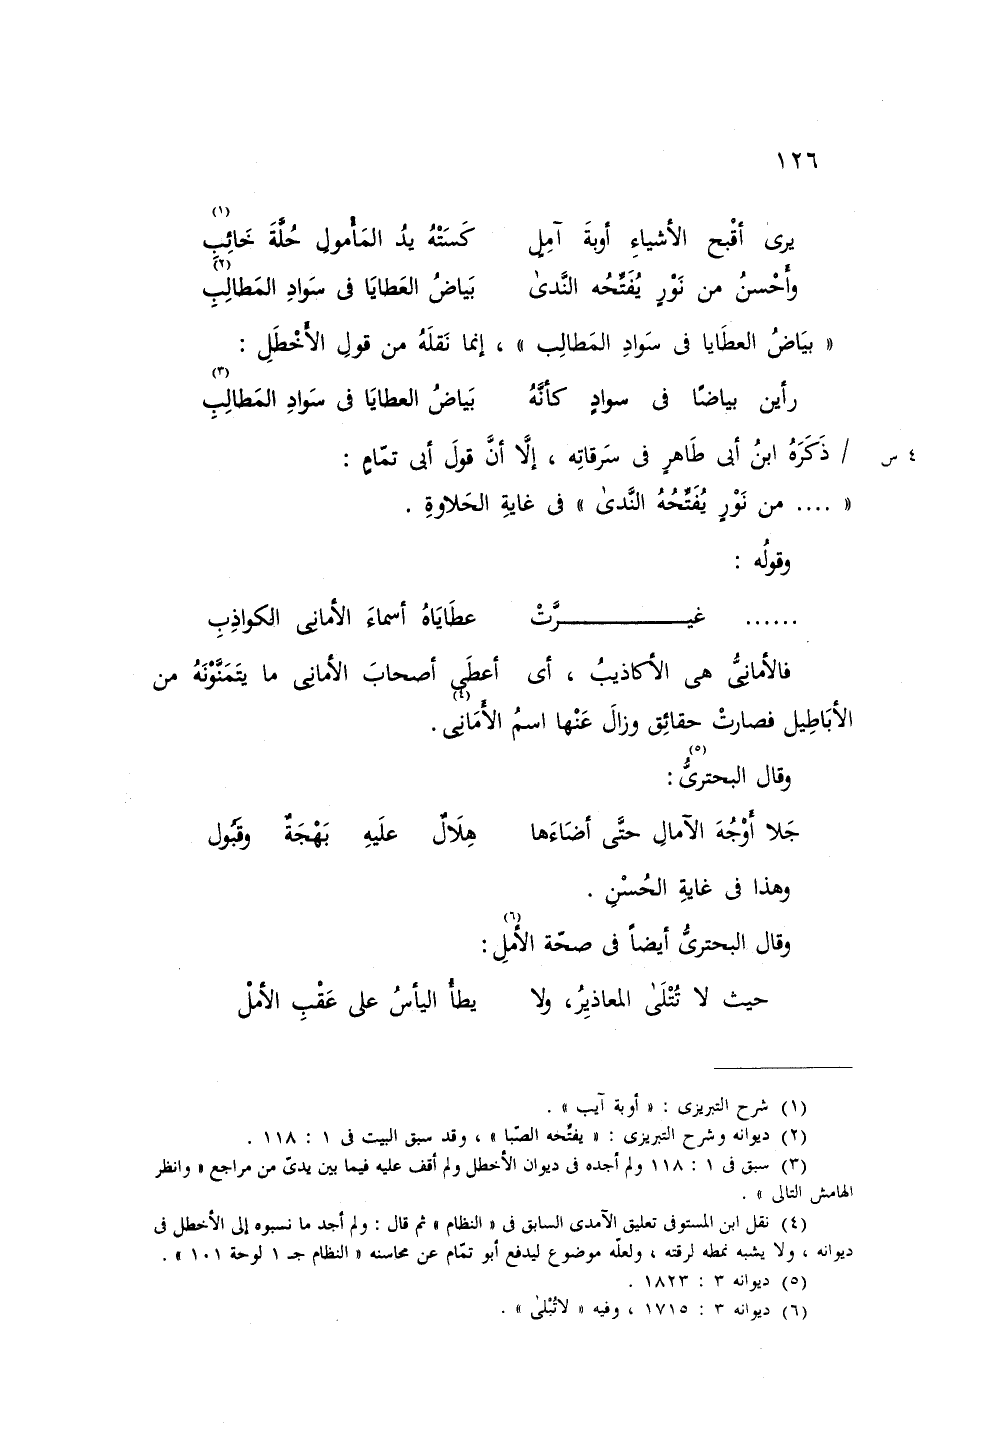 ١٢٦
يرى أقْبح الأشياءِ أوبةَ آمِلٍ كَسَتْهُ يدُ المَأْمولِ حُلَّةَ خَائِبِ (١)
وأَحْسنُ من نَوْرٍ يُفَتِّحُه النَّدىٰ بَياضُ العَطايَا فى سَوادِ المَطالِبِ (٢)
« بيَاضُ العطَايا فى سَوادِ المَطالِب » ، إنما نَقلَهُ من قولِ الأخْطَلِ :
رأين بياضًا فى سوادٍ كأنَّهُ بَياضُ العطايَا فى سَوادِ المَطالِبِ (٣)
٤ س / ذَكَرَهُ ابنُ أبى طَاهرٍ فى سَرقاتِه ، إلَّا أنَّ قولَ أبى تمّامٍ :
« .... من نَوْرٍ يُفَتِّحُهُ النَّدىٰ » فى غايةِ الحَلاوةِ .
وقولُه :
...... غيــــــــرَّتْ عطَايَاهُ أسماءَ الأمانِى الكواذِبِ
فالأمانِىُّ هى الأكاذيبُ ، أى أعطَى أصحابَ الأمانِى ما يتَمَنَّوْنَهُ من
الأبَاطِيل فصارتْ حقائِق وزالَ عَنْها اسمُ الأَمَانِى (٤) .
وقال البحترىُّ (٥) :
جَلا أَوْجُهَ الآمالِ حتَّى أضَاءَها هِلَالٌ عليَهِ بَهْجَةٌ وقَبُول
وهذا فى غايةِ الحُسْنِ .
وقال البحترىُّ أيضاً فى صحّة الأملِ (٦) :
حيث لا تُتْلَىٰ المعاذيرُ، ولا يطأُ اليأسُ على عَقْبِ الأملْ
(١) شرح التبريزى : « أوبة آيب » .
(٢) ديوانه وشرح التبريزى : « يفتِّحه الصّبا » ، وقد سبق البيت فى ١ : ١١٨ .
(٣) سبق فى ١ : ١١٨ ولم أجده فى ديوان الأخطل ولم أقف عليه فيما بين يدىّ من مراجع « وانظر
الهامش التالى » .
(٤) نقل ابن المستوفى تعليق الآمدى السابق فى « النظام » ثم قال : ولم أجد ما نسبوه إلى الأخطل فى
ديوانه ، ولا يشبه نمطه لرقته ، ولعلّه موضوع ليدفع أبو تمّام عن محاسنه « النظام جـ ١ لوحة ١٠١ » .
(٥) ديوانه ٣ : ١٨٢٣ .
(٦) ديوانه ٣ : ١٧١٥ ، وفيه « لاتُبْلىٰ » .